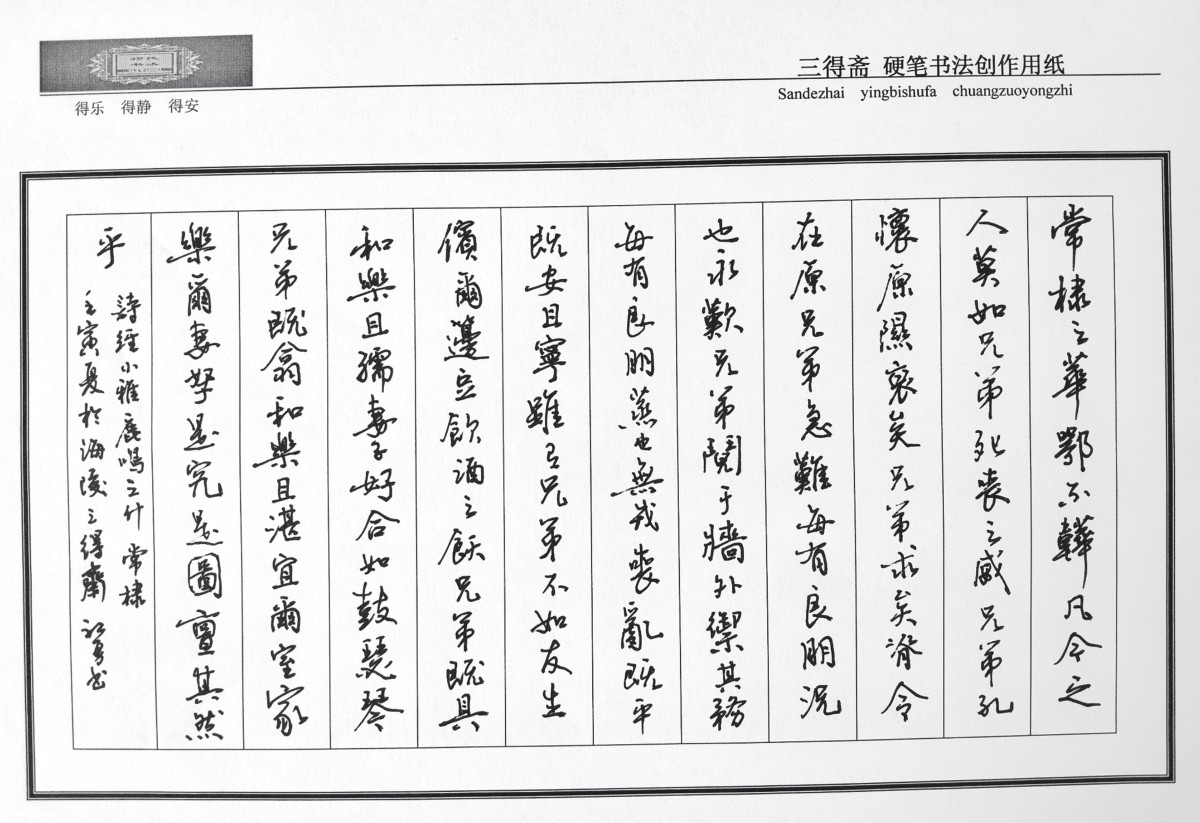 三得斋 硬笔书法创作用纸
Sandezhai yingbishufa chuangzuoyongzhi
得乐 得静 得安
常棣之華鄂不韡凡今之
人莫如兄弟死喪之威兄弟孔
懷原隰裒矣兄弟求矣脊令
在原兄弟急難每有良朋況
也永歎兄弟鬩于牆外禦其務
每有良朋蒸也無戎喪亂既平
既安且寧雖有兄弟不如友生
儐爾籩豆飲酒之飫兄弟既具
和樂且孺妻子好合如鼓瑟琴
兄弟既翕和樂且湛宜爾室家
樂爾妻孥是究是圖亶其然
乎
詩經小雅鹿鳴之什 常棣
壬寅夏於海陵三得齋